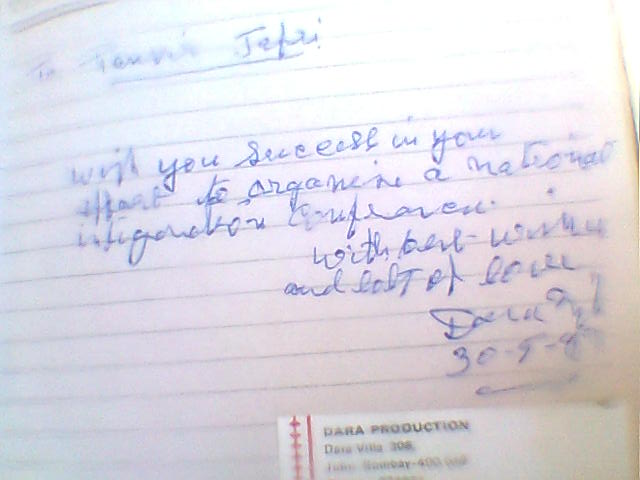 To Tanvir Jafri
wish you success in your
effort to organize a national
intigration confrence.
with best wishes
and lots of love
Dara
30-5-
DARA PRODUCTION
Dara Villa 308,
Juhu Bombay-400 049